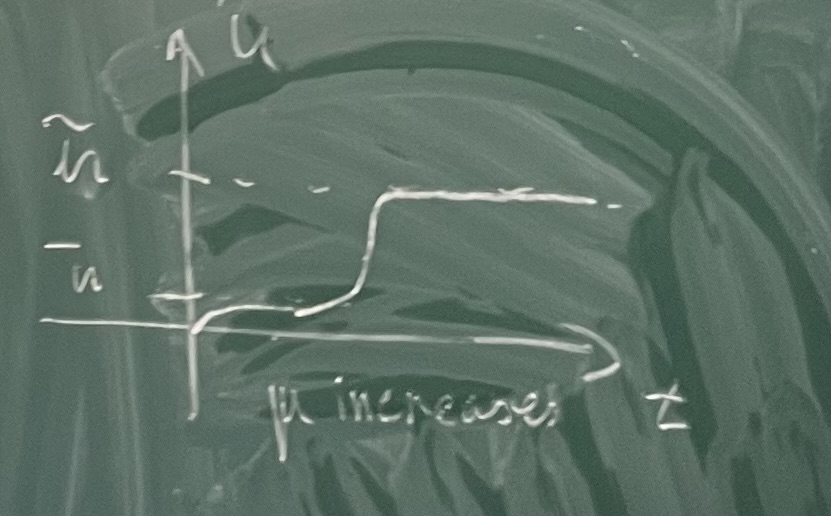 u
ũ
ū
μ increases
t